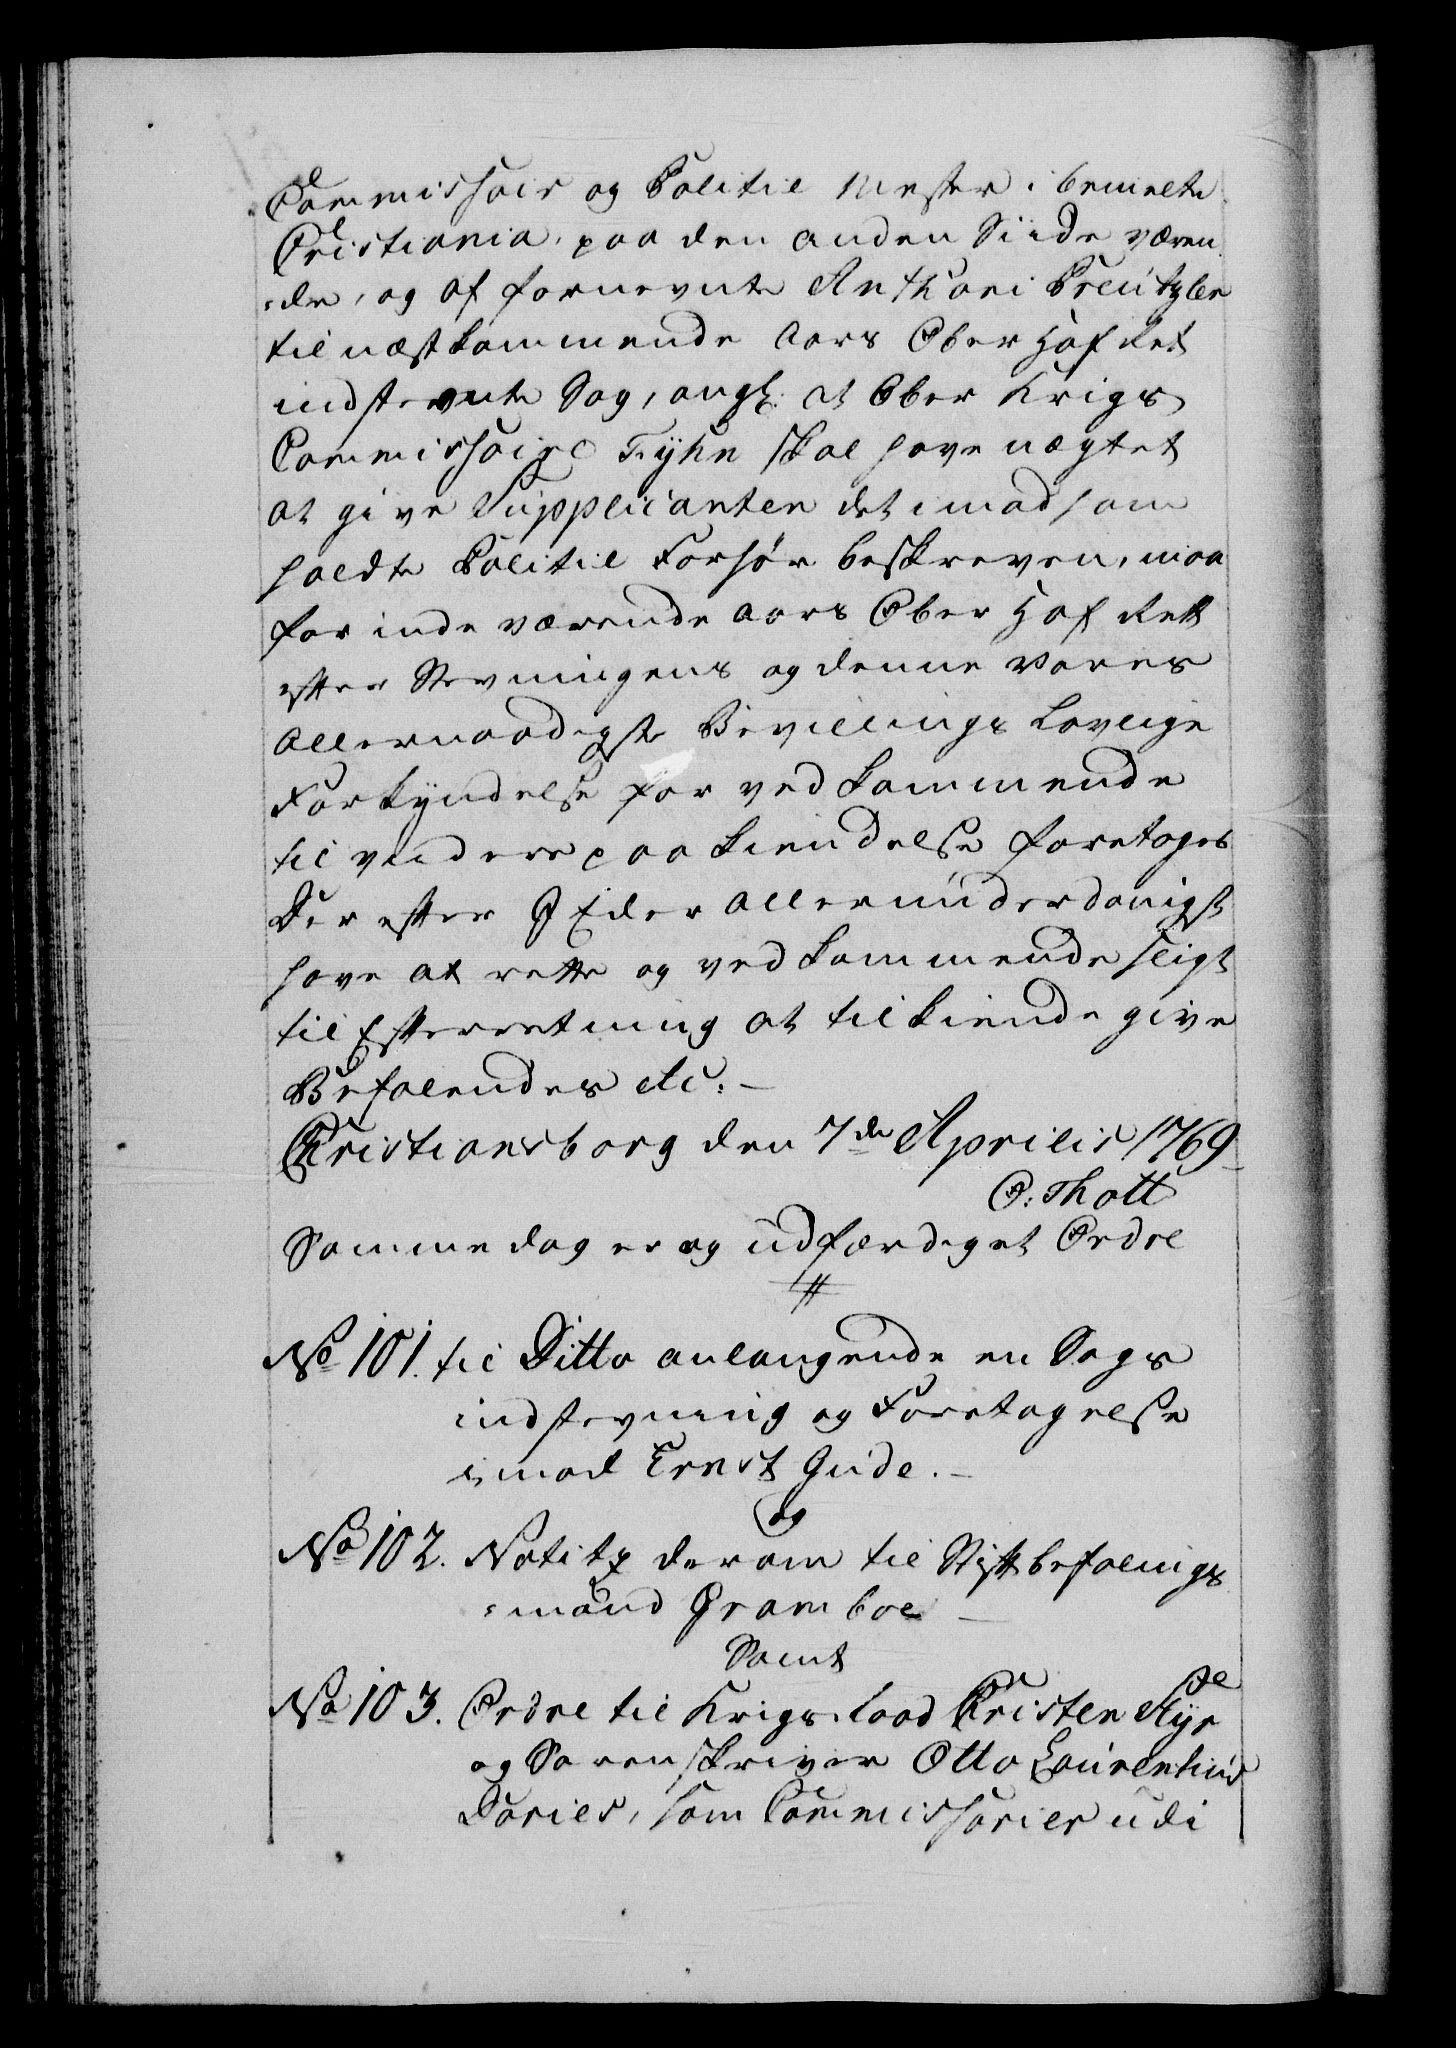 Commissair og Politie Mester i bemelte
Christiania, paa den anden Siide væren
-de, og af fornevnte Anthoni Breutzler
til næstkommende Aars Ober Hof Ret
indstevnte Sag, angl: at Ober Krigs
Commissaire Fyhn skal have nægtet
at give Supplicanten det imod ham
holdte Politie Forhør beskreven, maa
for inde værende Aars Ober Hof Rett
efter Stevningens og denne Vores
Allernaadigste Bevillings Lovlige
Forkyndelse for vedkommende
til videre paakiendelse foretages
Der efter I Eder allerunderdanigst
have at rette og vedkommende sligt
til Efterretning at tilkiende give
Befalendes etc: —
Christiansborg den 7de Aprilis 1769
O: Thott
Samme dag er og udfærdiget Ordre
No 101. til Ditto anlangende en Sags
indstevning og Foretagelse
imod Ernst Gude. —
og
No 102. Notitz derom til Stiftbefalings
-mand Gramboe —
Samt
No 103. Ordre til Krigs Raad Christen
og Sorenskriver Otto Laurentius
Dories, som Commissarier udi